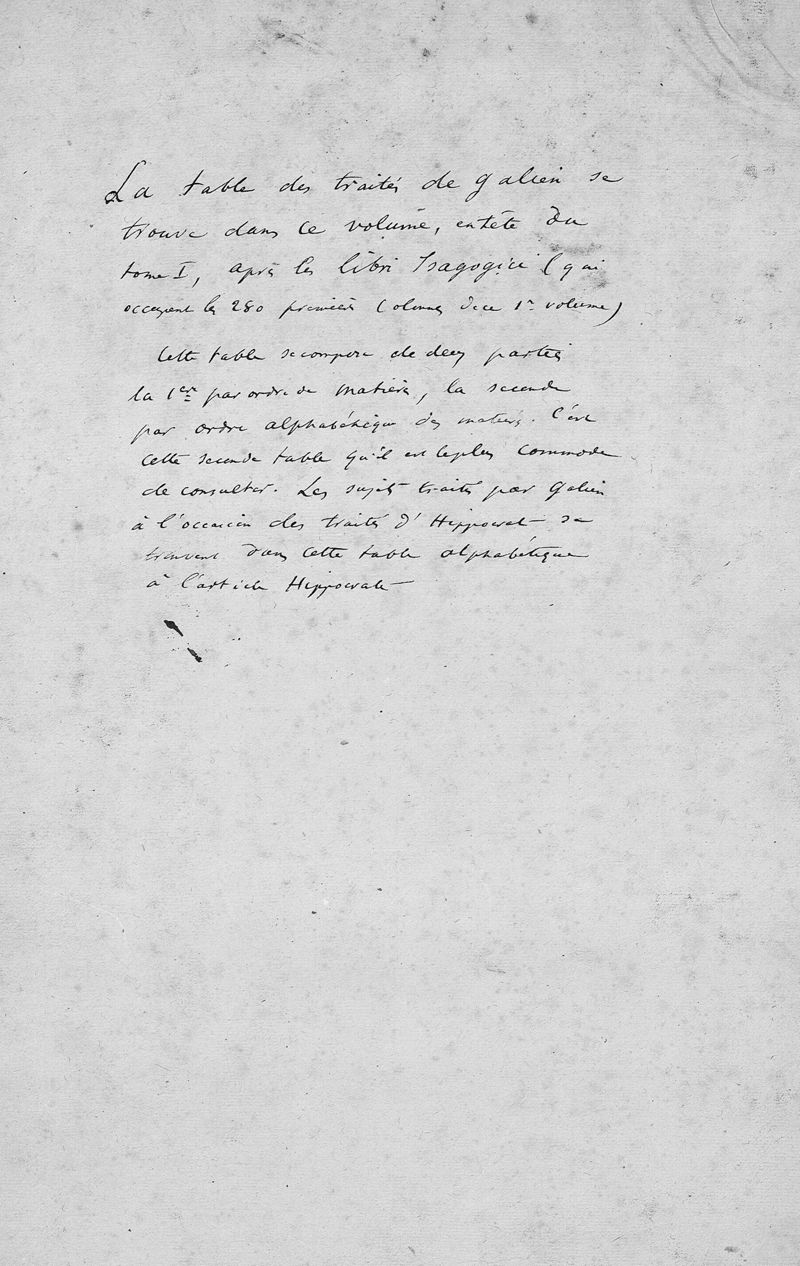 La table des traités de galien se
trouve dans ce volume, entête du
tome I, après les libri Isagogici (qui
occupent les 280 premières Colonnes de ce 1er volume)
Cette table se compose de deux parties
la 1ère par ordre de matières, la seconde
par ordre alphabétique des matières. C'est
cette seconde table qu'il est le plus commode
de consulter. Les sujets traités par Galien
à l'occasion des traités d'Hippocrate se
trouvent dans cette table alphabétique
à l'article Hippocrate